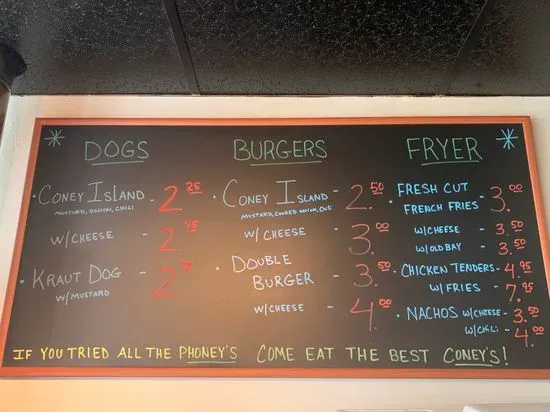 DOGS
CONEY ISLAND - 2.25
MUSTARD, ONION, CHILI
W/CHEESE - 2.75
KRAUT DOG - 2.
W/MUSTARD
BURGERS
CONEY ISLAND - 2.50
MUSTARD, COOKED ONION,
W/CHEESE - 3.00
DOUBLE
BURGER - 3.50
W/CHEESE - 4.00
FRYER
FRESH CUT
FRENCH FRIES - 3.00
W/CHEESE - 3.50
W/OLD BAY - 3.50
CHICKEN TENDERS - 4.95
W/FRIES - 7.95
NACHOS W/CHEESE - 3.50
W/CHILI - 4.00
IF YOU TRIED ALL THE PHONEY'S COME EAT THE BEST CONEY'S!